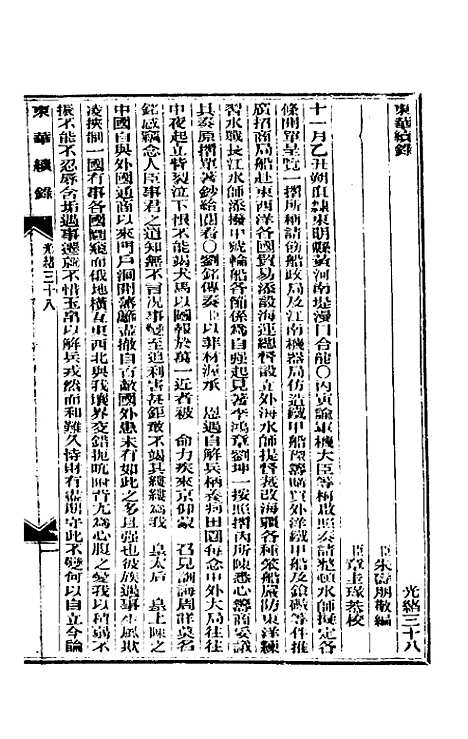 東華續錄
光緒三十八
臣朱壽朋敬編
臣章圭瑑恭校
十一月乙丑朔直隸東明縣黃河南堤漫口合龍〇丙寅諭軍機大臣等梅啟照奏請整頓水師擬定各
條開單呈覽一摺所稱請飭船政局及江南機器局仿造鐵甲船豫籌購買外洋鐵甲船及鎗礮等件推
廣招商局船赴東西洋各國貿易添設海運總督設立外海水師提督裁改海疆各種笨船嚴防東洋練
習水戰長江水師添撥甲號輪船各節係為自强起見著李鴻章劉坤一按照摺內所陳悉心籌商妥議
具奏原摺單著鈔給閱看〇劉銘傳奏臣以菲材渥承 恩遇自解兵柄養疴田園每念中外大局往往
中夜起立眥裂泣下恨不能竭犬馬以圖報於萬一近者被 命力疾來京仰蒙 召見訓誨周詳莫名
銘感竊念人臣事君之道知無不言況事變至迫利害甚鉅敢不竭其縷縷為我 皇太后 皇上陳之
中國自與外國通商以來門戶洞開藩籬盡撤自古敵國外患未有如此之多且强也彼族遇事生風欺
凌挾制一國有事各國圜窺而俄地橫亙東西北與我壤界交錯扼吭拊背尤為心腹之憂我以積弱不
振不能不忍辱含垢遇事遷就不惜玉帛以解兵戎然而和難久恃財有盡期守此不變何以自立今論
東華續錄
光緒三十八
一